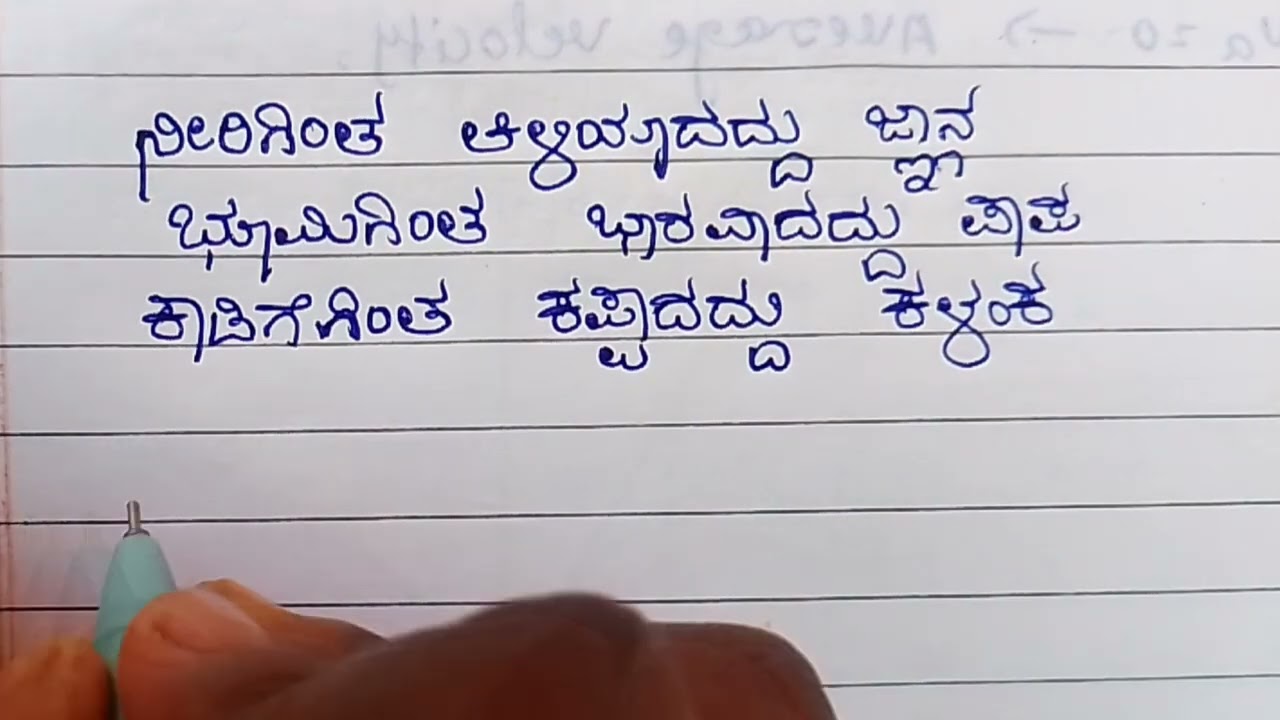 ನೀರಿಗಿಂತ ತಿಳಿಯಾದದ್ದು ಜ್ಞಾನ
ಭೂಮಿಗಿಂತ ಭಾರವಾದದ್ದು ಪಾಪ
ಕಾಡಿಗೆಗಿಂತ ಕಪ್ಪಾದದ್ದು ಕಳಂಕ